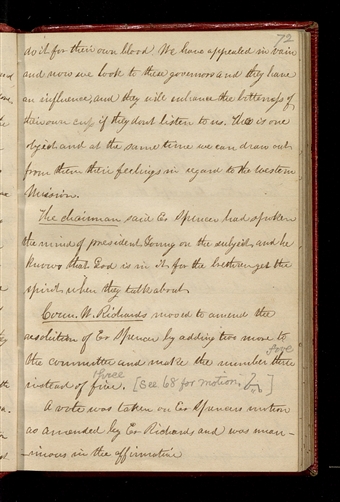 72
as it for their own blood. We have appealed in vain
and now we look to these governors and they have
an influence, and they will enhance the bitterness of
their own cup if they dont listen to us. This is one
object and at the same time we can draw out
from them their feelings in regard to the western
Mission.
The chairman said Er Spencer had spoken
the mind of president Young on the subject, and he
knows that God is in it for the brethren get the
spirit when they talk about
Coun. W. Richards moved to amend the
resolution of Er Spencer by adding two more to
the committee and make the number three five
instead of five. three [See 68 for motion,]
A vote was taken on Er Spencers motion
as amended by Er Richards and was unan-
-imous in the affirmative